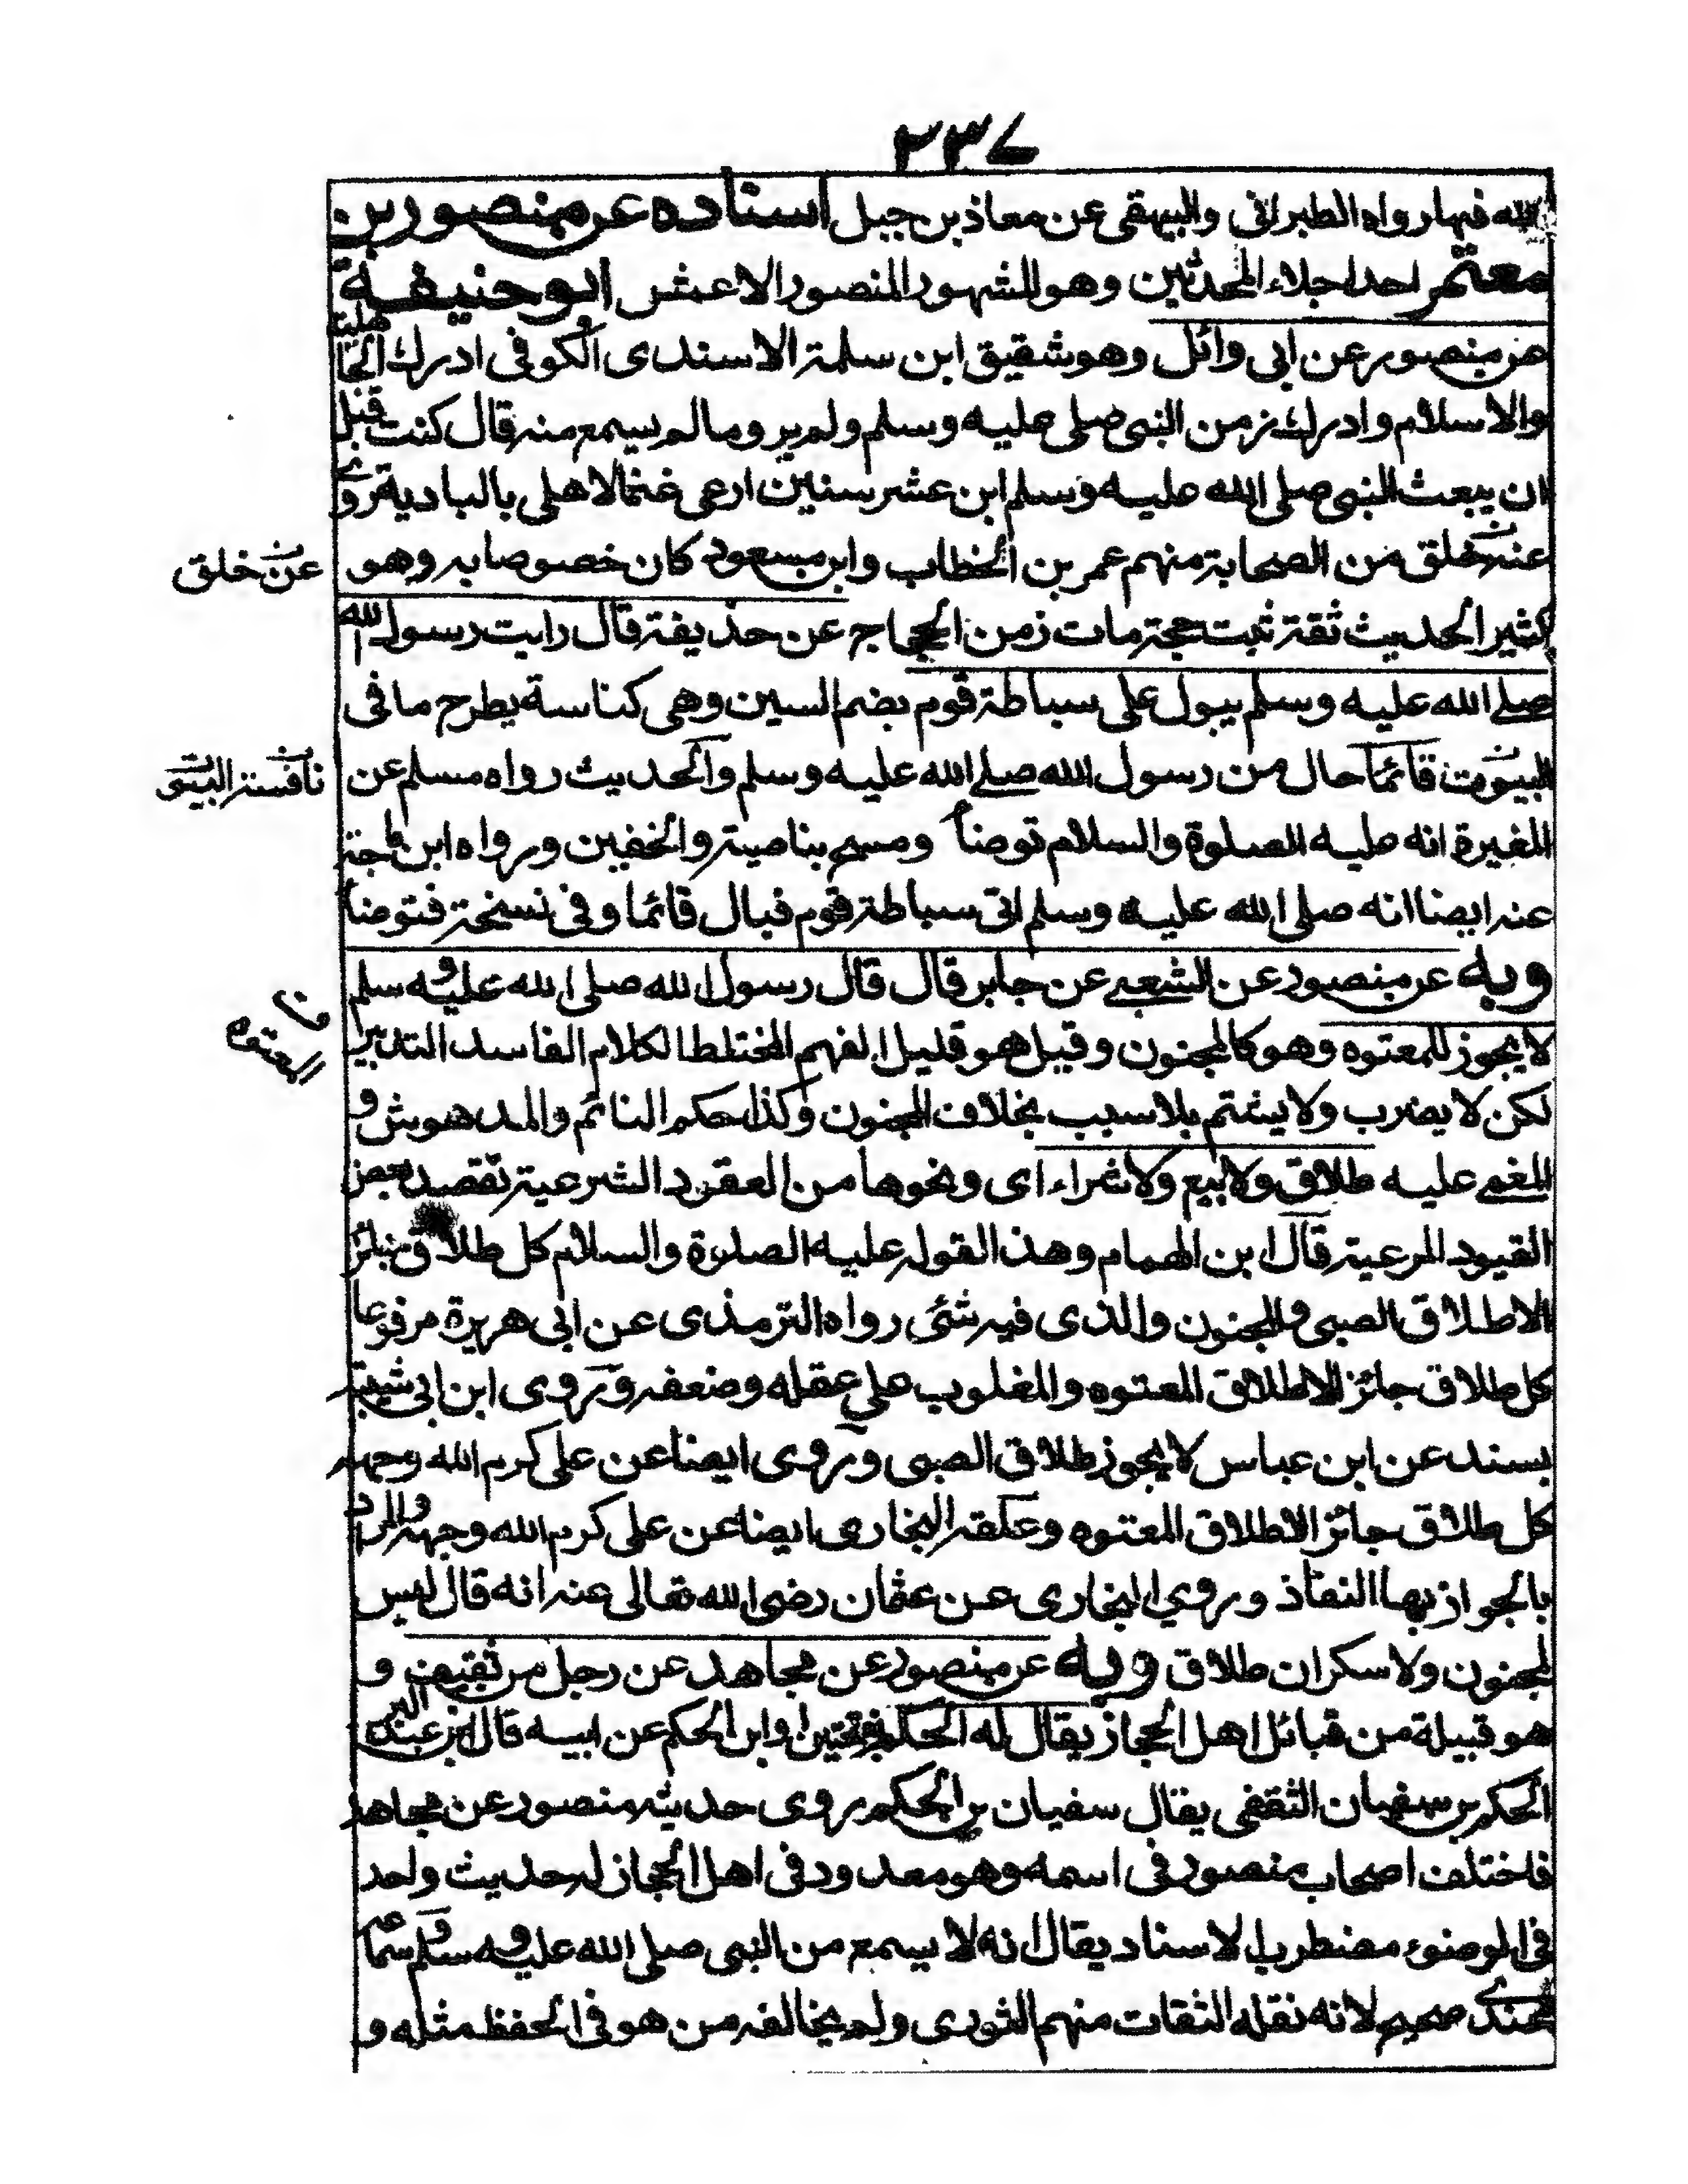 ٢٣٧
الله فيها رواه الطبرانى والبيهقى عن معاذ بن جبل اسناده عن منصور بن
معتمر احد اجلاء المحدثين وهو المشهور المنصور الاعمش ابو حنيفة
عن منصور عن ابى وائل وهو شقيق ابن سلمة الاسندى الكوفى ادرك الجاهلية
والاسلام وادرك زمن النبى صلى عليه وسلم ولم ير وما لم يسمع منه قال كنت قبل
ان يبعث النبى صلى الله عليه وسلم ابن عشر سنين ارعى غنما لاهلى بالبادية روى
عنه خلق من الصحابة منهم عمر بن الخطاب وابن مسعود كان خصوصا به وهو
عن خلق
كثير الحديث ثقة ثبت حجة مات زمن الحجاج عن حذيفة قال رايت رسول الله
صلى الله عليه وسلم يبول على سباطة قوم بضم السين وهى كناسة يطرح ما فى
البيوت قائما حال من رسول الله صلى الله عليه وسلم والحديث رواه مسلم عن
المغيرة انه عليه الصلوة والسلام توضأ ومسح بناصيته والخفين ورواه ابن ماجة
عنه ايضا انه صلى الله عليه وسلم اتى سباطة قوم فبال قائما وفى نسخة فتوضأ
وبه عن منصور عن الشعبى عن جابر قال قال رسول الله صلى الله عليه وسلم
المعتوه
لا يجوز للمعتوه وهو كالمجنون وقيل هو قليل الفهم المختلط الكلام الفاسد التدبير
لكن لا يضرب ولا يشتم بلا سبب بخلاف المجنون وكذا حكم النائم والمدهوش و
المغمى عليه طلاق ولا بيع ولا شراء اى ونحوها من العقود الشرعية تقصد بعض
القيود المرعية قال ابن الهمام وهذا القوله عليه الصلوة والسلام كل طلاق جائز
الا طلاق الصبى والمجنون والذى فيه شئى رواه الترمذى عن ابى هريرة مرفوعا
كل طلاق جائز الا طلاق المعتوه والمغلوب على عقله وضعفه وروى ابن ابى شيبة
بسند عن ابن عباس لا يجوز طلاق الصبى وروى ايضا عن على كرم الله وجهه
كل طلاق جائز الا طلاق المعتوه وعلقه البخارى ايضا عن على كرم الله وجهه والمراد
بالجواز بها النفاذ وروى البخارى عن عثمان رضى الله تعالى عنه انه قال ليس
لمجنون ولا سكران طلاق وبه عن منصور عن مجاهد عن رجل من ثقيف و
هو قبيلة من قبائل اهل الحجاز يقال له الحكم بفتحتين او ابن الحكم عن ابيه قال ابن عبد البر
الحكم بن سفيان الثقفى يقال سفيان بن الحكم روى حديثه منصور عن مجاهد
فاختلف اصحاب منصور فى اسمه وهو معدود فى اهل الحجاز له حديث واحد
فى الوضوء مضطرب الاسناد يقال انه لا يسمع من النبى صلى الله عليه وسلم وسماعه
عندى صحيح لانه نقله الثقات منهم الثورى ولم يخالفه من هو فى الحفظ مثله و